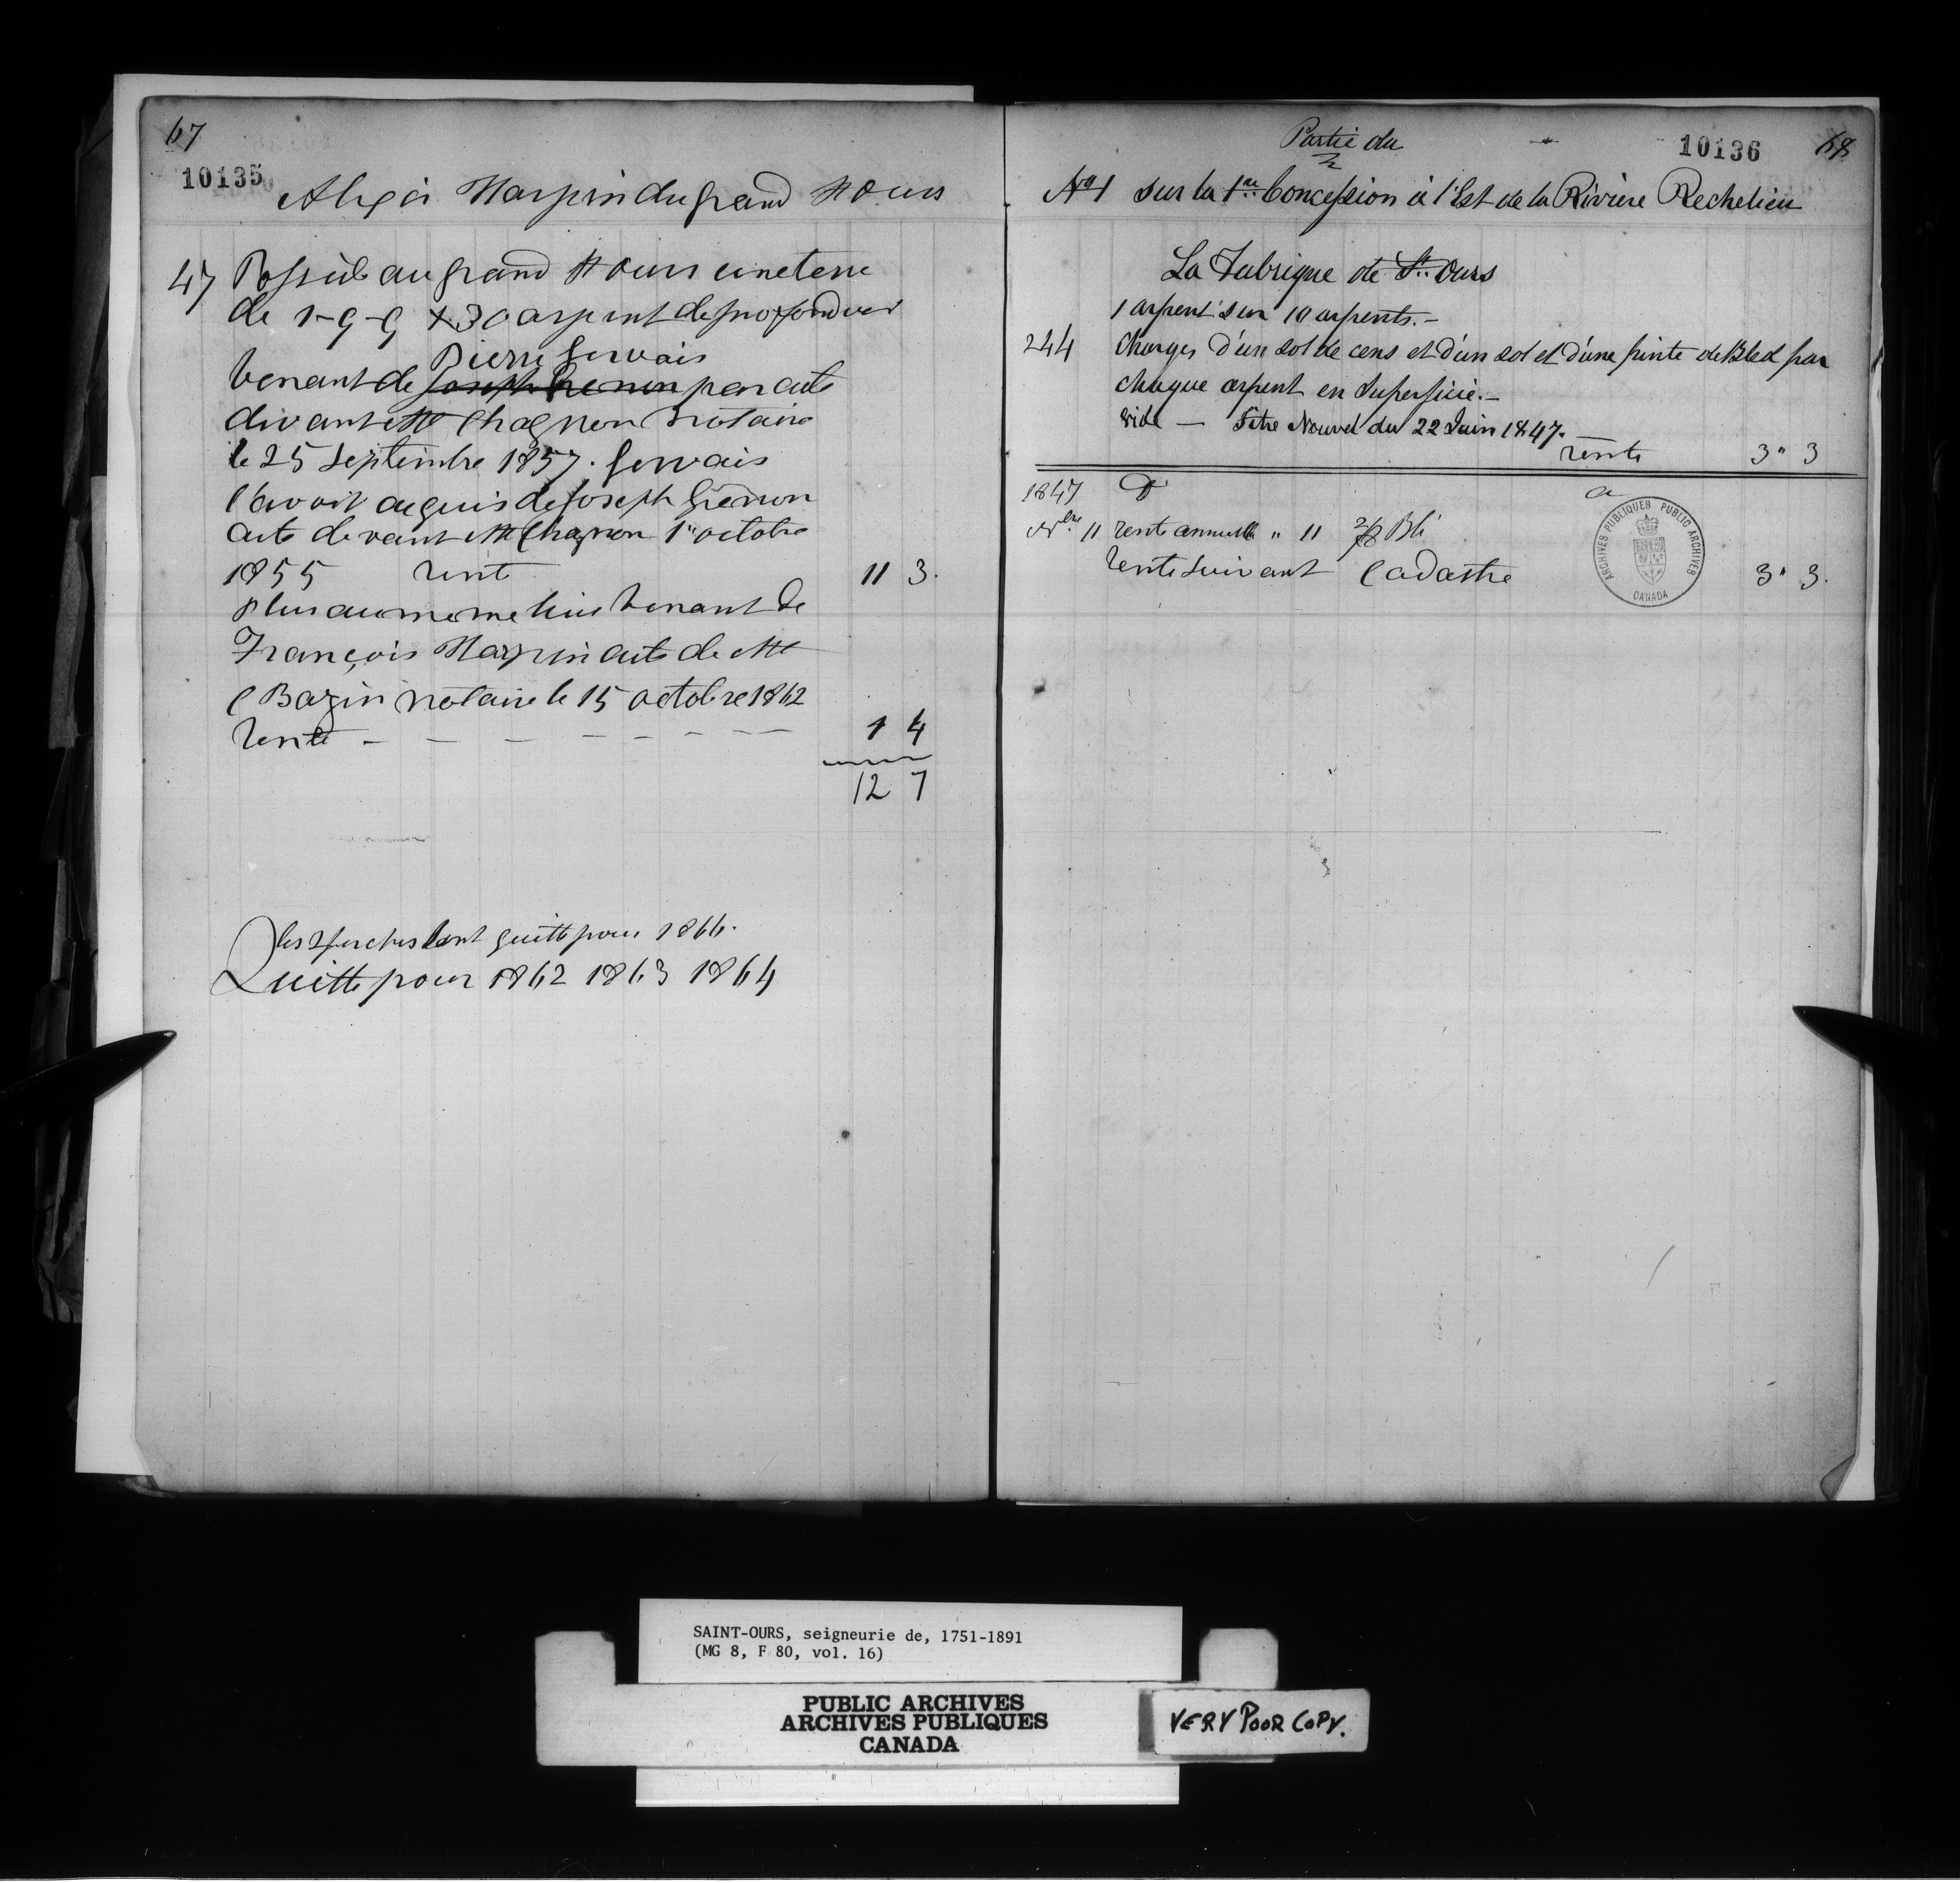 67
10135
Alexis Harpin du grand St Ours
47 Possède au grand St Ours une terre
de 1-9-9 x 30 arpent de profondeur
Pierre Gervais
venant de Joseph Grenon par acte
devant Mtre Chagnon notaire
le 25 Septembre 1857. Gervais
l'avoit acquis de Joseph Grenon
acte devant Mtre Chagnon 1er octobre
1855 rent 11 3.
Plus au meme lieu venant de
François Harpin acte de Mtre
C Bazin notaire le 15 octobre 1862
rente - - - - - - - - 1 4
12 7
les 2 perches sont quitte pour 1866.
Quitte pour 1862 1863 1864
Partie du
10136 68
No 1 sur la 1re Concession à l'Est de la Rivière Rechelieu
La Fabrique de St. Ours
1 arpent sur 10 arpents.-
244 Charges d'un sol de cens et d'un sol et d'une pinte de Bled par
chaque arpent en Superficie.-
vide — Titre Nouvel du 22 Juin 1847.
rente 3" 3
1847 Dr a
Nbre 11 rente annuelle " 11 Blé
rente suivant Cadastre 3" 3.
ARCHIVES PUBLIQUES PUBLIC ARCHIVES
CANADA
SAINT-OURS, seigneurie de, 1751-1891
(MG 8, F 80, vol. 16)
PUBLIC ARCHIVES
ARCHIVES PUBLIQUES
CANADA
VERY POOR COPY.